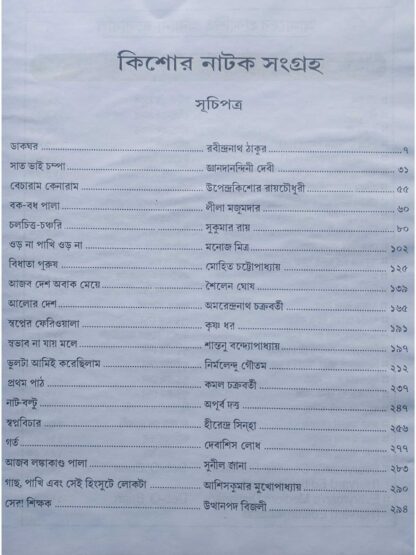 কিশোর নাটক সংগ্রহ
সূচিপত্র
ডাকঘর ........ রবীন্দ্রনাথ ঠাকুর ........ ৭
সাত ভাই চম্পা ........ জ্ঞানদানন্দিনী দেবী ........ ৩১
বেচারাম কেনারাম ........ উপেন্দ্রকিশোর রায়চৌধুরী ........ ৫৫
বক-বধ পালা ........ লীলা মজুমদার ........ ৬০
চলচিত্ত-চঞ্চরি ........ সুকুমার রায় ........ ৮০
ওড় না পাখি ওড় না ........ মনোজ মিত্র ........ ১০২
বিধাতা পুরুষ ........ মোহিত চট্টোপাধ্যায় ........ ১২৫
আজব দেশ অবাক মেয়ে ........ শৈলেন ঘোষ ........ ১৩৯
আলোর দেশ ........ অমরেন্দ্রনাথ চক্রবর্তী ........ ১৬৫
স্বপ্নের ফেরিওয়ালা ........ কৃষ্ণ ধর ........ ১৯১
স্বভাব না যায় মলে ........ শান্তনু বন্দ্যোপাধ্যায় ........ ১৯৭
ভুলটা আমিই করেছিলাম ........ নির্মলেন্দু গৌতম ........ ২১২
প্রথম পাঠ ........ কমল চক্রবর্তী ........ ২৩৭
নাট-বল্টু ........ অপূর্ব দত্ত ........ ২৪৭
স্বপ্নবিচার ........ হীরেন্দ্র সিন্‌হা ........ ২৫৬
গর্ত ........ দেবাশিস লোধ ........ ২৭৭
আজব লঙ্কাকাণ্ড পালা ........ সুনীল জানা ........ ২৮৩
গাছ, পাখি এবং সেই হিংসুটে লোকটা ........ আশিসকুমার মুখোপাধ্যায় ........ ২৯০
সেরা শিক্ষক ........ উত্থানপদ বিজলী ........ ২৯৪